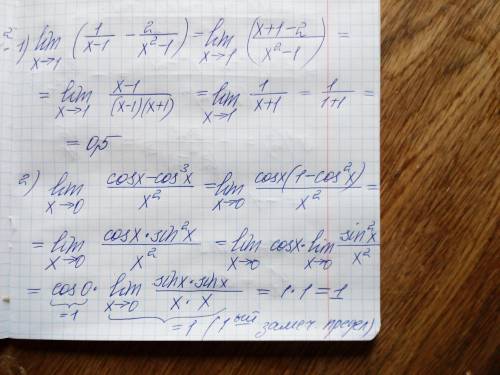 1) lim x→1 (1/(x-1) - 2/(x²-1)) = lim x→1 ((x+1-2)/(x²-1)) =
= lim x→1 (x-1)/((x-1)(x+1)) = lim x→1 1/(x+1) = 1/(1+1) =
= 0,5
2) lim x→0 (cosx-cos³x)/x² = lim x→0 (cosx(1-cos²x))/x² =
= lim x→0 (cosx·sin²x)/x² = lim x→0 cosx · lim x→0 sin²x/x²
= cos0 · lim x→0 (sinx·sinx)/(x·x) = 1·1=1
=1 =1 (1ый замеч. предел)